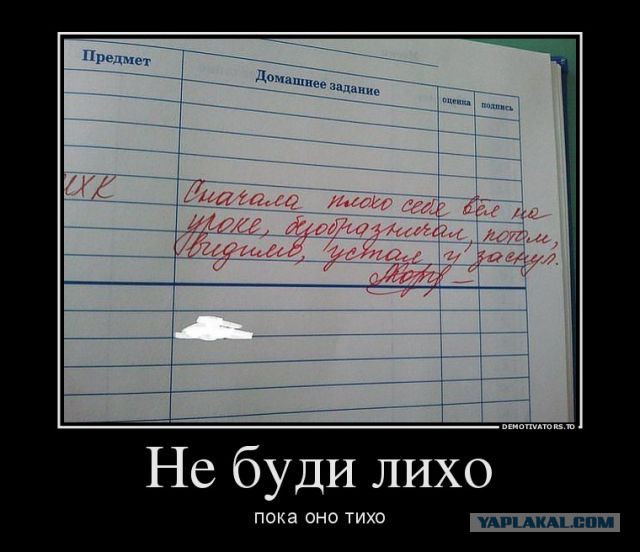 Предмет Домашнее задание оценка подпись
МХК Сначала плохо себя вёл на
уроке, безобразничал, потом,
видимо, устал и заснул.
DEMOTIVATORS.TO
Не буди лихо
пока оно тихо
YAPLAKAL.COM